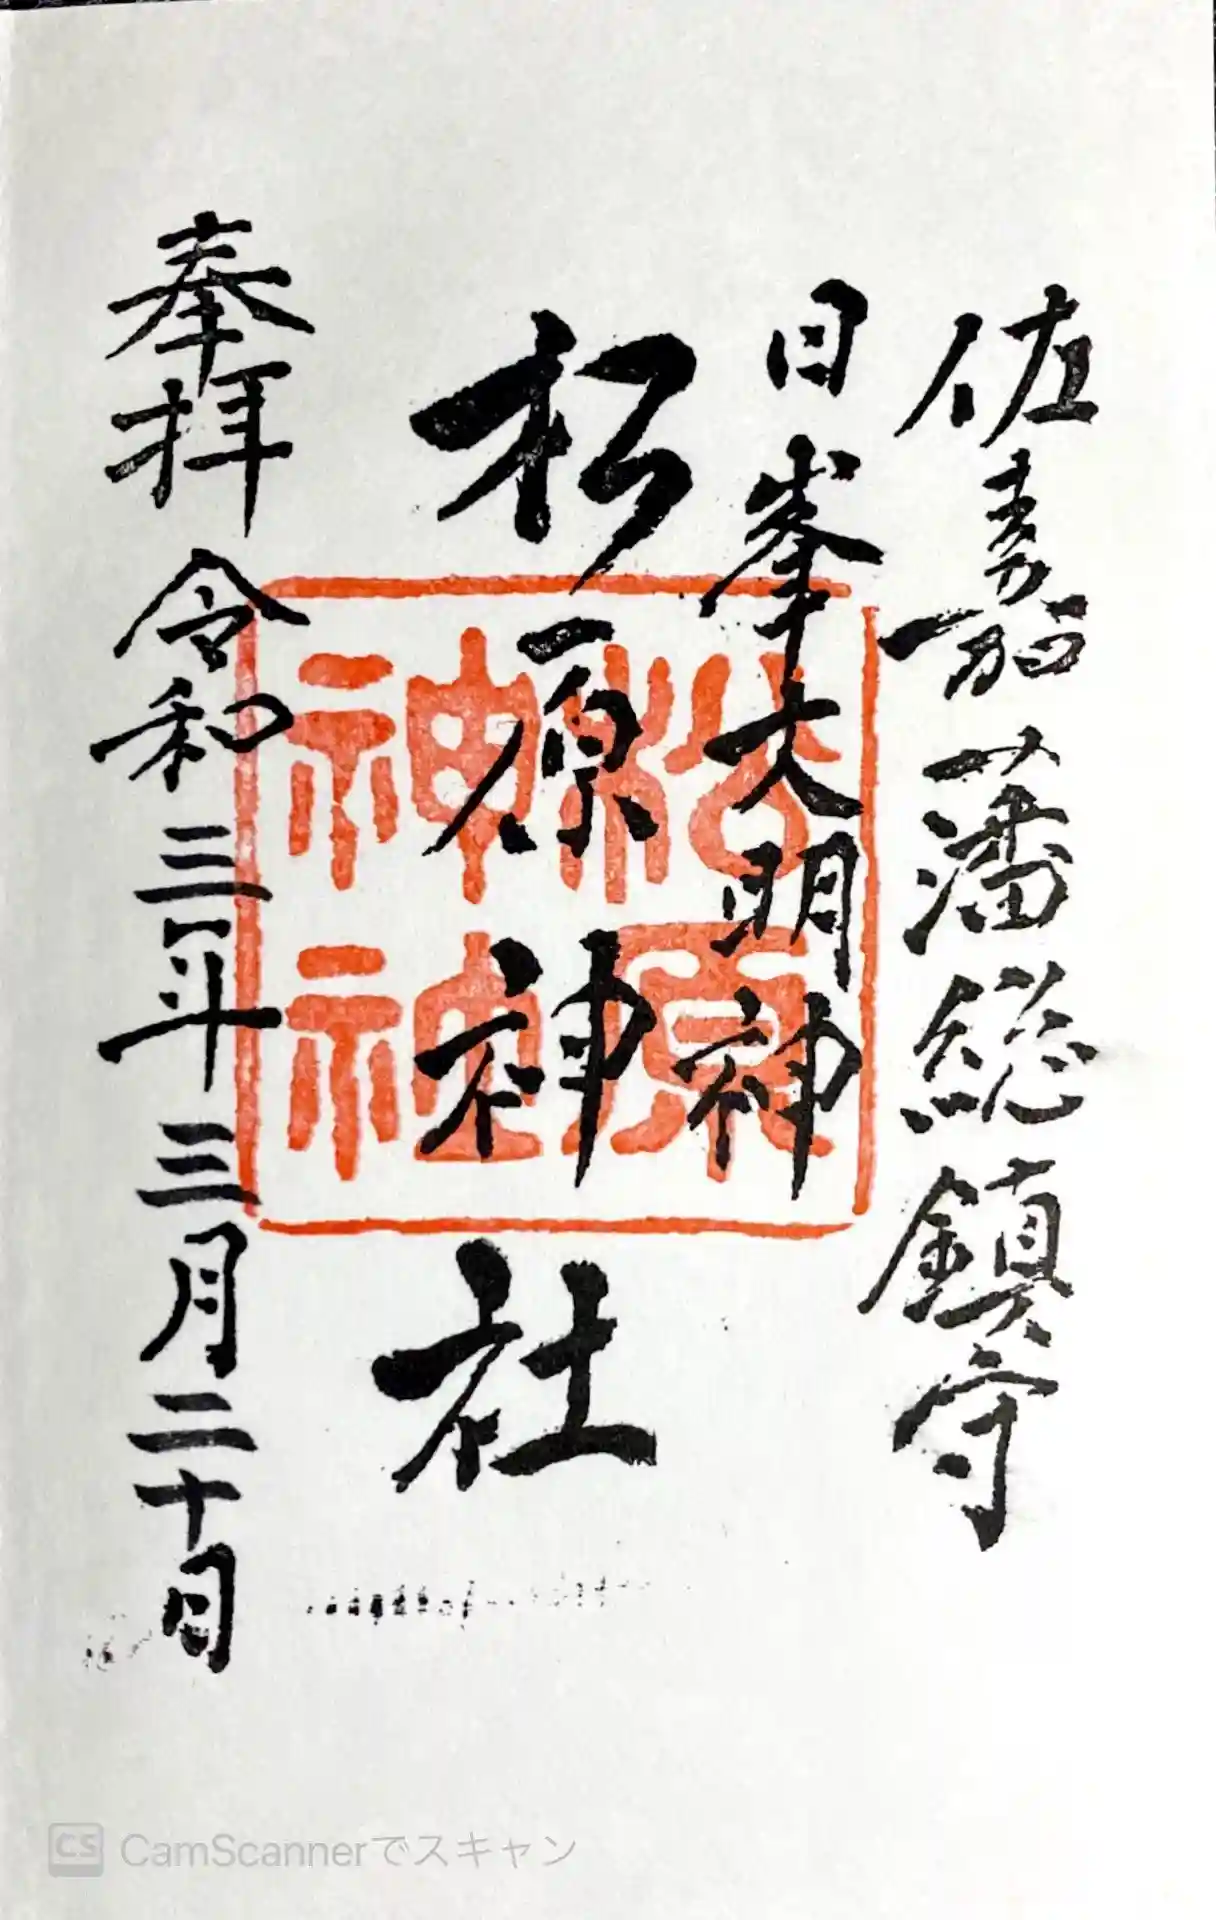 佐嘉藩総鎮守
日峯大明神
松原神社
奉拝 令和三年三月二十日
松原
神社
CS CamScannerでスキャン